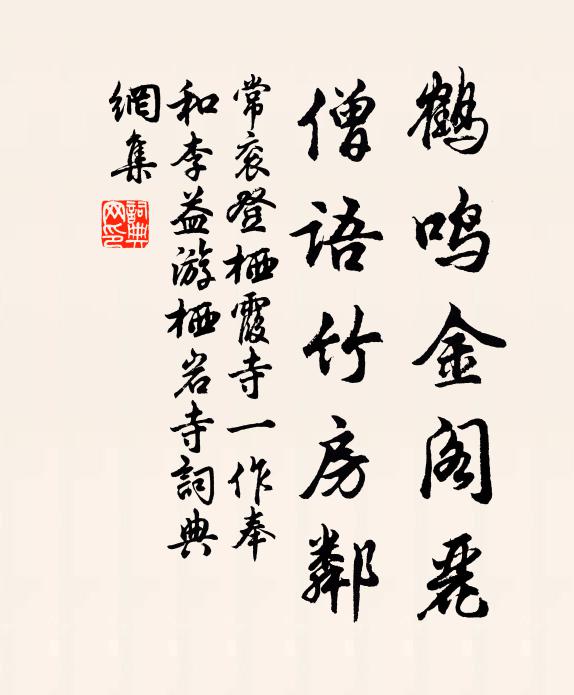 鶴鸣金阁麗
僧語竹房鄰
常衮登栖霞寺一作奉
和李益游栖岩寺詞典
網集
詞典網印